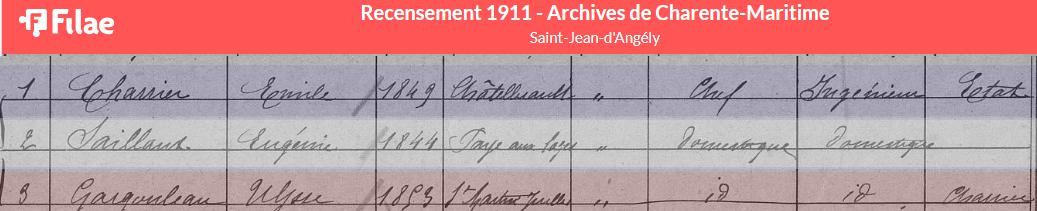 Filae
Recensement 1911 - Archives de Charente-Maritime
Saint-Jean-d'Angély
1 Charrier Emile 1849 Châtellerault " Chef Ingénieur Etat
2 Saillant Eugénie 1844 " Domestique Domestique
3 Gargouleau Ulysse 1853 St Martin " id id Charrier